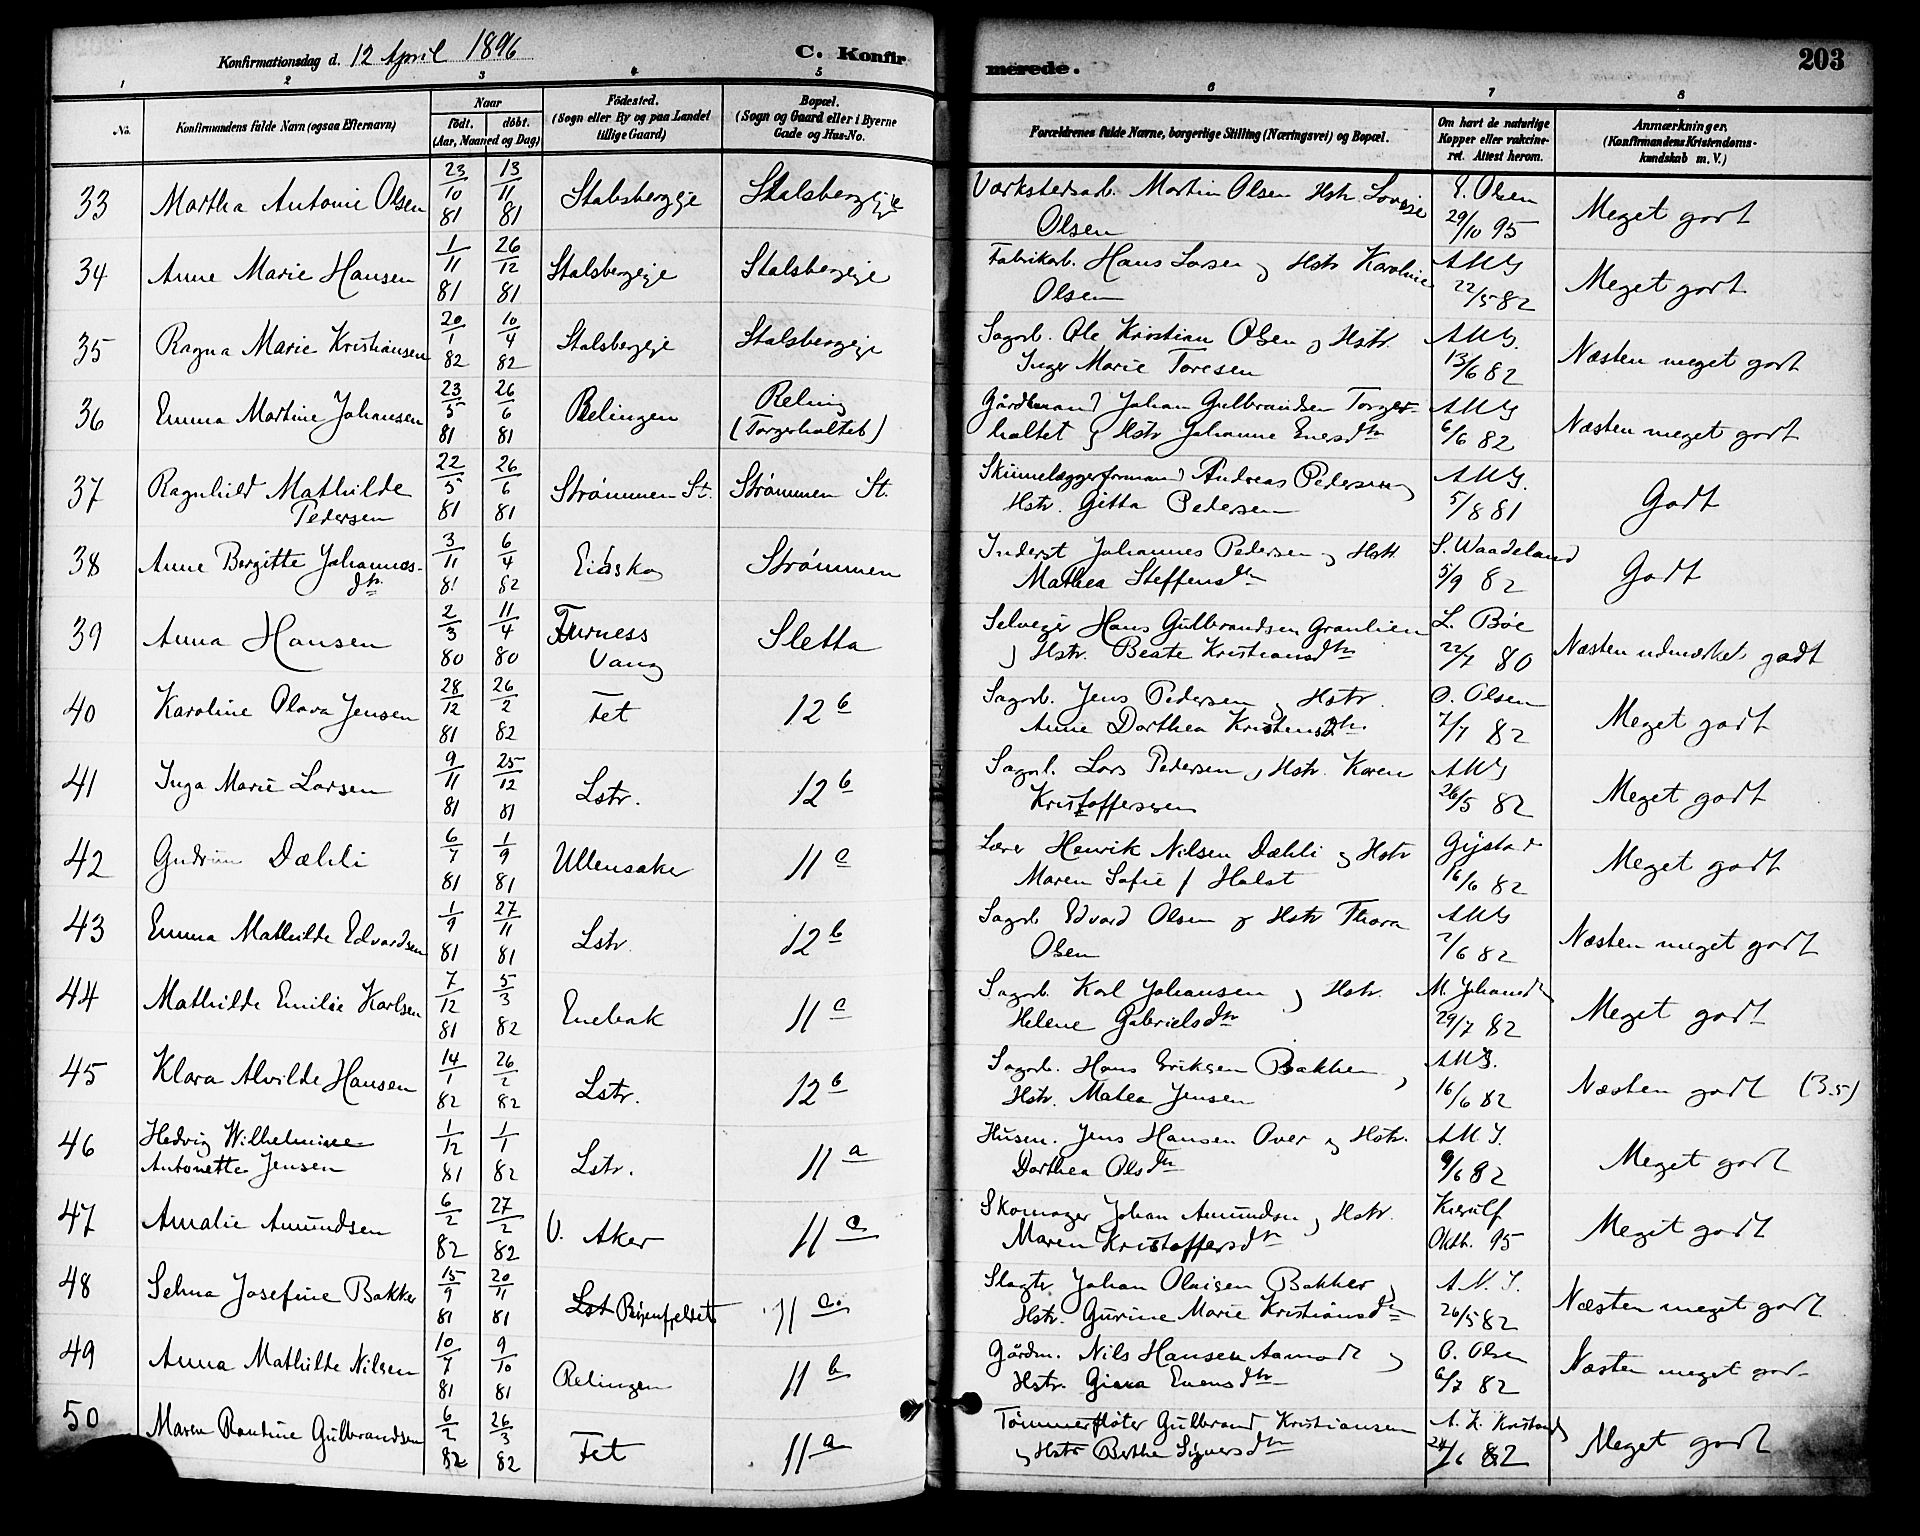 Konfirmationsdag d. 12 April 1896
C. Konfirmerede.
203
1 2 3 4 5 6 7 8
No.
Konfirmandens fulde Navn (ogsaa Efternavn)
Naar
födt. döbt.
(Aar, Maaned og Dag)
Födested.
(Sogn eller By og paa Landet
tillige Gaard)
Bopæl.
(Sogn og Gaard eller i Byerne
Gade og Hus-No.
Forældrenes fulde Navne, borgerlige Stilling (Næringsvei) og Bopæl.
Om havt de naturlige
Kopper eller vakcine-
ret. Attest herom.
Anmærkninger,
(Konfirmandens Kristendoms-
kundskab m. V.)
33 Martha Antonie Olsen 23/10 81 13/11 81 Stalsbergeje Stalsbergeje Værkstedsarb. Martin Olsen Hstr. Lovise
Olsen
Olsen 29/10 95 Meget godt
34 Anne Marie Hansen 1/11 81 26/12 81 Stalsbergeje Stalsbergeje Fabrikarb. Hans Larsen og Hstr Karoline
Olsen
22/5 82 Meget godt
35 Ragna Marie Kristiansen 20/1 82 10/4 82 Stalsbergeje Stalsbergeje Sagarb. Ole Kristian Olsen og Hstr.
Inger Marie Toresen
13/6 82 Næsten meget godt
36 Emma Martine Johansen 23/5 81 26/6 81 Relingen Reling
(Torgerholtet)
Gårdmand Johan Gulbrandsen Torger-
holtet og Hstr Johanne Enersdtr
6/6 82 Næsten meget godt
37 Ragnhild Mathilde
Pedersen
22/5 81 26/6 81 Strømmen St. Strømmen St. Skinnelæggerformand Andreas Pedersen og
Hstr. Gitta Pedersen
5/8 81 Godt
38 Anne Bergitte Johannes-
dtr.
3/11 81 6/4 82 Eidskog Strømmen Inderst Johannes Pedersen og Hstr
Mathea Steffensdtr
S. Waadeland
5/9 82 Godt
39 Anna Hansen 2/3 80 11/4 80 Furness
Vang
Sletta Selveger Hans Gulbrandsen Granlien
og Hstr. Beate Kristiansdtr
L. Bøe
22/7 80 Næsten udmærket godt
40 Karoline Olava Jensen 28/12 81 26/2 82 Fet 12 b Sagarb. Jens Pedersen og Hstr.
Anne Dorthea Kristensdtr.
O. Olsen
7/7 82 Meget godt
41 Inga Marie Larsen 9/11 81 25/12 81 Lstr. 12 b Sagarb. Lars Pedersen og Hstr. Karen
Kristoffersen
26/5 82 Meget godt
42 Gudrun Dæhli 6/7 81 1/9 81 Ullensaker 11 c Lærer Henrik Nilsen Dæhli og Hstr
Maren Sofie f Holst
Gjystad
16/6 82 Meget godt
43 Emma Mathilde Edvardsen 1/9 81 27/11 81 Lstr. 12 b Sagarb Edvard Olsen og Hstr Thora
Olsen
7/6 82 Næsten meget godt
44 Mathilde Emilie Karlsen 7/12 81 5/3 82 Enebak 11 c Sagarb. Karl Johansen og Hstr.
Helene Gabrielsdtr
M. Johansd
29/7 82 Meget godt
45 Klara Alvilde Hansen 14/1 82 26/2 82 Lstr. 12 b Sagarb. Hans Eriksen Bakken og
Hstr. Matea Jensen
16/6 82 Næsten godt (3.5)
46 Hedvig Wilhelmine
Antonette Jensen
1/12 81 1/1 82 Lstr. 11 a Husm. Jens Hansen Aver og Hstr.
Dorthea Olsdtr
9/6 82 Meget godt
47 Amalie Amundsen 6/2 82 27/2 82 V. Aker 11 c Skomager Johan Amundsen og Hstr.
Maren Kristoffersdtr
Kierulf
Oktb. 95 Meget godt
48 Selma Josefine Bakker 15/9 81 20/11 81 Lst 11 c. Slagter Johan Olaisen Bakker og
Hstr. Gurine Marie Kristiansdtr
26/5 82 Næsten meget godt
49 Anna Mathilde Nilsen 10/7 81 9/10 81 Relingen 11 b Gårdm. Nils Hansen Aamodt og
Hstr. Giana Evensdtr
O. Olsen
6/7 82 Næsten meget godt
50 Maren Randine Gulbrandsen 6/2 82 26/3 82 Fet 11 a Tømmerfløter Gulbrand Kristiansen
og Hstr Berthe Sigversdtr
24/6 82 Meget godt